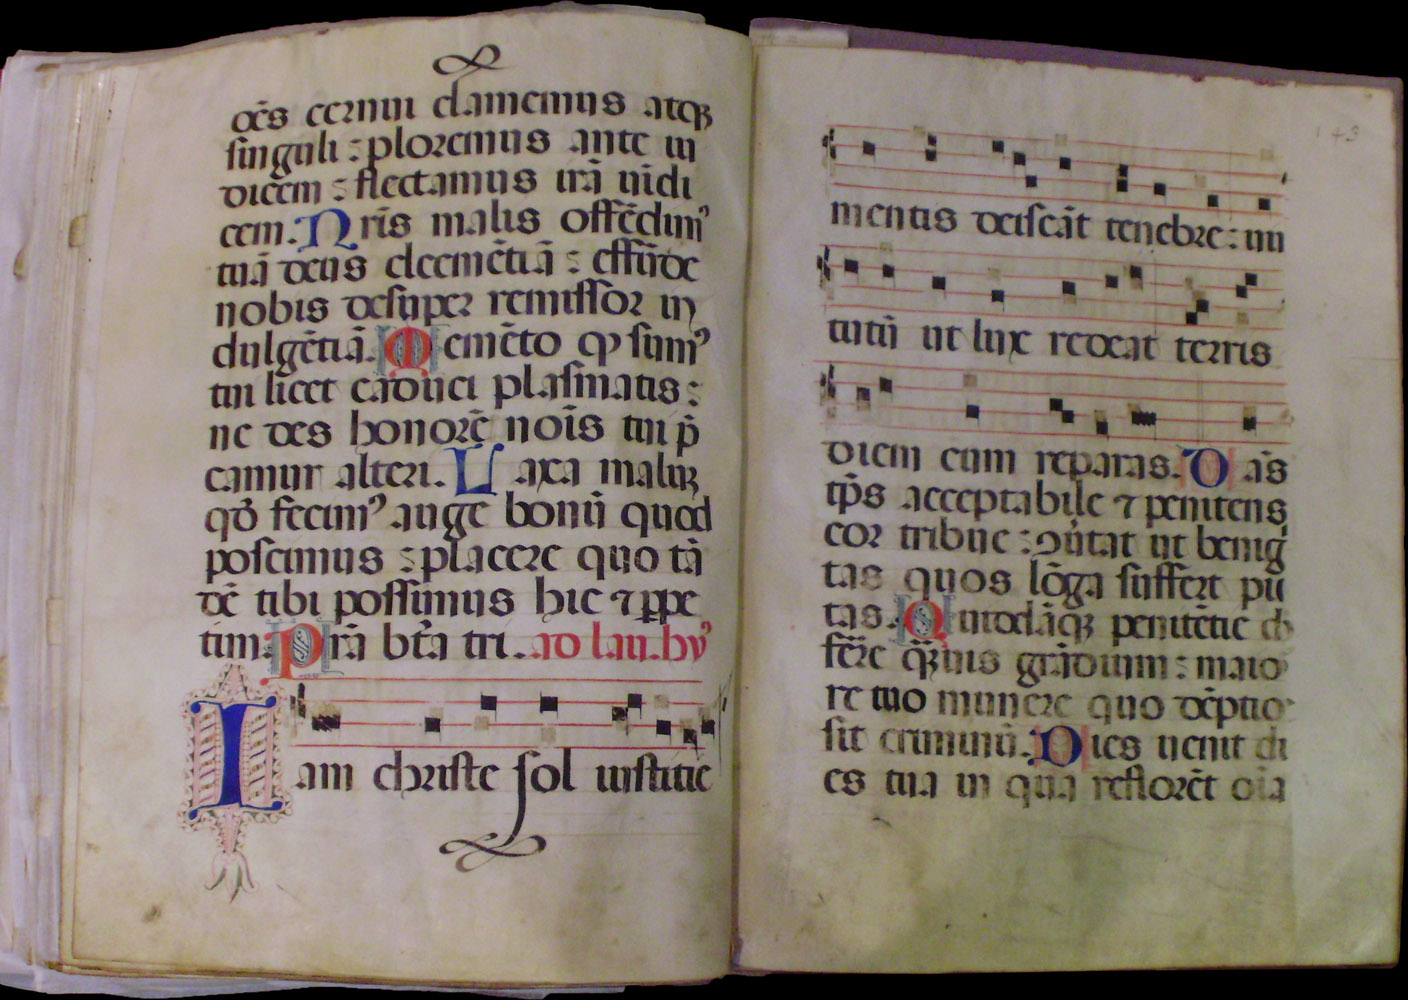 oēs cernui clamemus atqꝫ
singuli : ploremus ante iu
dicem : flectamus irā uīdi
cem. Nrīs malis offēdimꝰ
tuā deus clemētiā : effūde
nobis desuper remissor in
dulgētiā. Memēto ꝙ sumꝰ
tui licet caduci plasmatis :
ne des honorē noīs tui p̄
camur alteri. Laxa malūꝫ
qđ fecimꝰ auge bonū quod
poscimus : placere quo tā
dē tibi possimus hic ⁊ ꝑpe
tim. Prā btā tri. ad lau. hyꝰ
Iam christe sol iustitie
143
mentis deiscāt tenebre : uir
tutū ut lux redeat terris
diem cum reparas. Dās
tp̄s acceptabile ⁊ penitens
cor tribue : ꝯūtat ut benig
tas quos lōga suffert pie
tas. Quiddāqꝫ penitētie da
ferre qꝫuis grāduum : maio
re tuo munere quo dēptio
sit criminū. Dies uenit di
es tua in qua reflorēt oīa